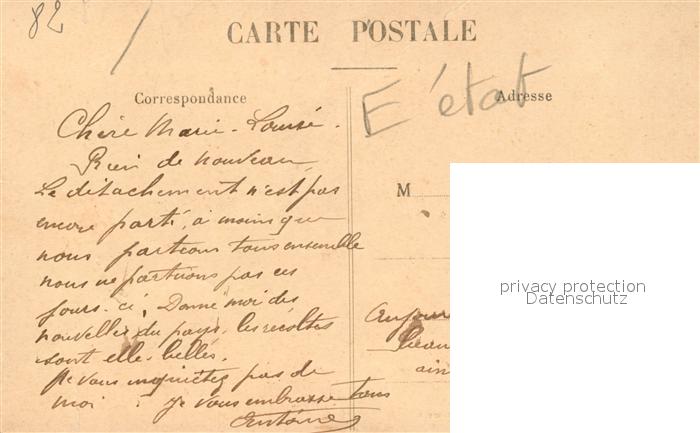 82
CARTE POSTALE
E'état
Correspondance
Adresse
Chère Marie-Louise.
Rien de nouveau
Le détachement n'est pas
encore parti, à moins que
nous partions tous ensemble
nous ne partirons pas ces
jours-ci. Donne moi des
nouvelles du pays, les récoltes
sont elle belles.
Ne vous inquiétez pas de
moi. je vous embrasse tous
Antoine
M
privacy protection
Datenschutz
beau
ain